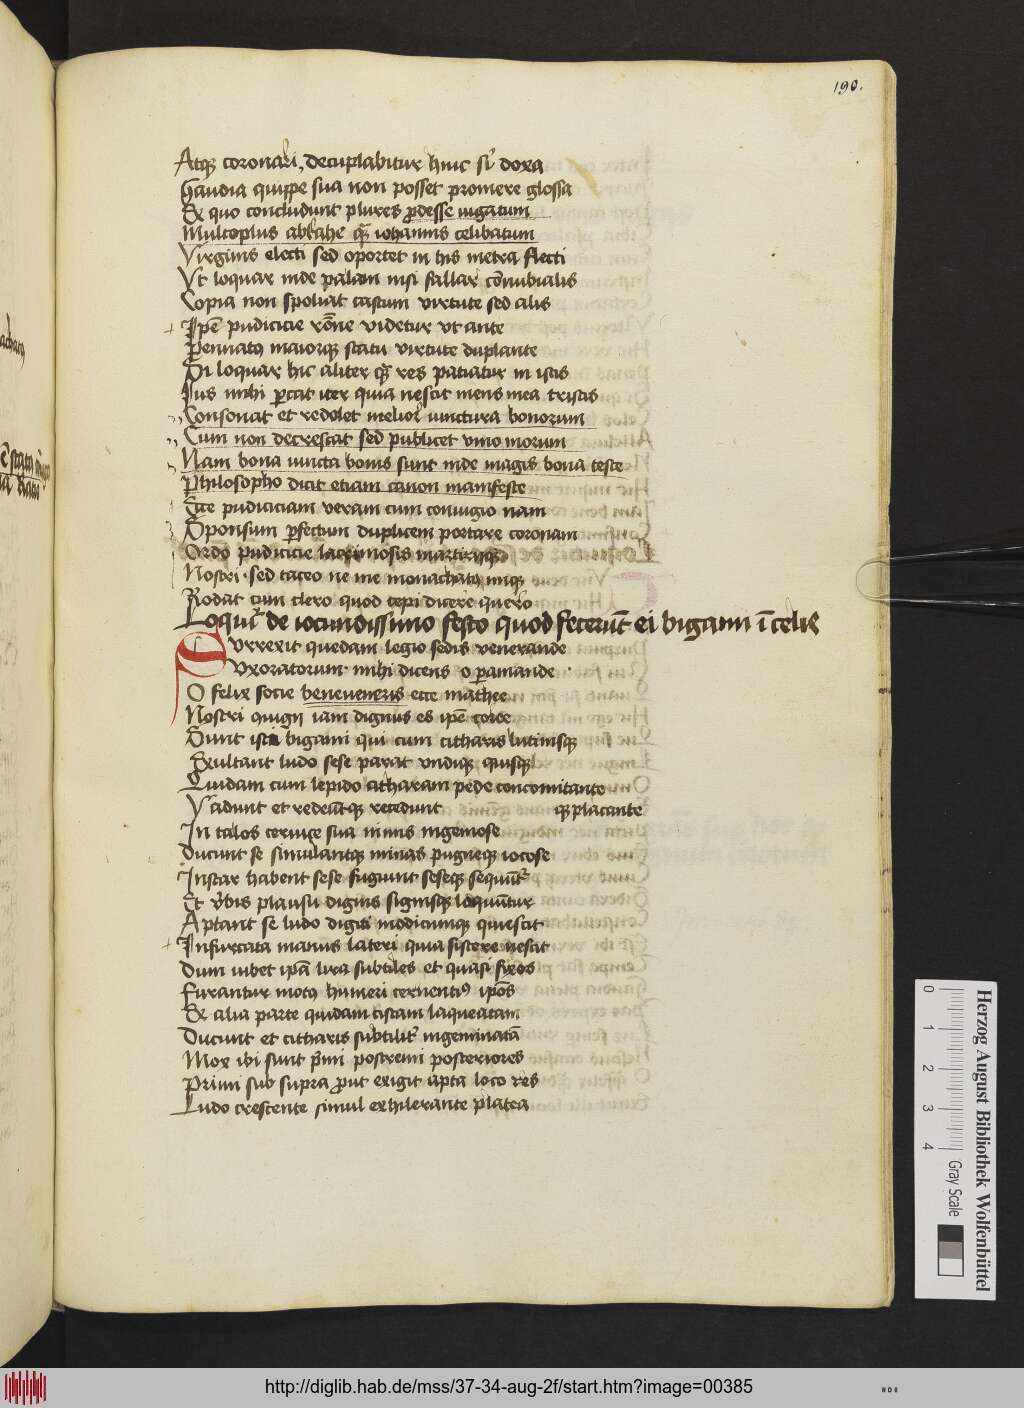 190.
Atq; coronari, decuplabitur huic si doxa
Gaudia quippe sua non posset promere glossa
Ex quo concludunt plures pdesse iugatum
Multoplus abrahe q̄ iohannis celibatum
Virginis electi sed oportet in his metra flecti
Vt loquar inde palam nisi fallar cōnubialis
Copia non spoliat castum virtute sed alis
Ipē pudicicie rōne videtur ut ante
Pennatꝰ maiorq; statu virtute duplante
Si loquar hic aliter q̄ res patiatur in istis
Ius mihi pcat iter quia nescit mens mea tristis
Consonat et redolet melior iunctura bonorum
Cum non decrescat sed publicet vnio morum
Nam bona iuncta bonis sunt inde magis bona teste
Philosopho dicit etiam canon manifeste
Sice pudiciciam veram cum coniugio nam
Sponsum pfectum duplicem portare coronam
Ordo pudicicie lacrimosis martirijsq;
Nostri sed taceo ne me monachatꝰ iniq;
Rodat cum clero quod cepi dicere quero
Loquit̄ de iocundissimo festo quod fecerūt ei bigami ī celis
Svrrexit quedam legio sedis venerande
Vxoratorum mihi dicens o pamande
O felix socie beneveneris ecce mathee
Nostri quign iam dignus es ipē coree
Sunt isti bigami qui cum citharis lutinisq;
Exultant ludo sese parat vndiq; quisq;
Quidam cum lepido citharam pede concomitante
Vadunt et redeūtq; recedunt q; placante
In talos ceruice sua nimis ingeniose
Ducunt se simulantq; minas pugneq; iocose
Instar habent sese fugiunt seseq; sequūt̄
Et v̄bis plausu dignis signisq; loquūtur
Aptant se ludo digiti modicumq; quiescit
Infurcata manus lateri quia sistere nescit
Dum iubet ipā lira subtiles et quasi fixos
Furantur motꝰ humeri cernentiꝰ ipōs
Ex alia parte quidam cistam laqueatam
Ducunt et citharis subtilit̄ ingeminatā
Mox ibi sunt p̄mi postremi posteriores
Primi sub supra put exigit apta loco res
Ludo crescente simul exhilerante platea
Herzog August Bibliothek Wolfenbüttel
Gray Scale
0 1 2 3 4
http://diglib.hab.de/mss/37-34-aug-2f/start.htm?image=00385